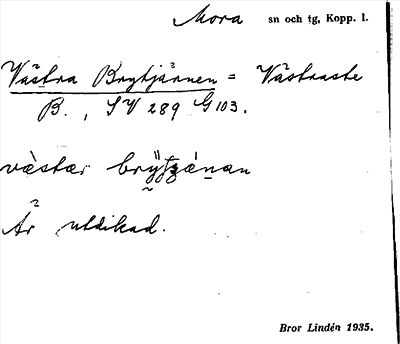 Mora sn och tg, Kopp. l.
Västra Brytjärnen = Västraste
B., SV 289 G 103.
vàstær brÿtȥá̈nan
Är utdikad.
Bror Lindén 1935.